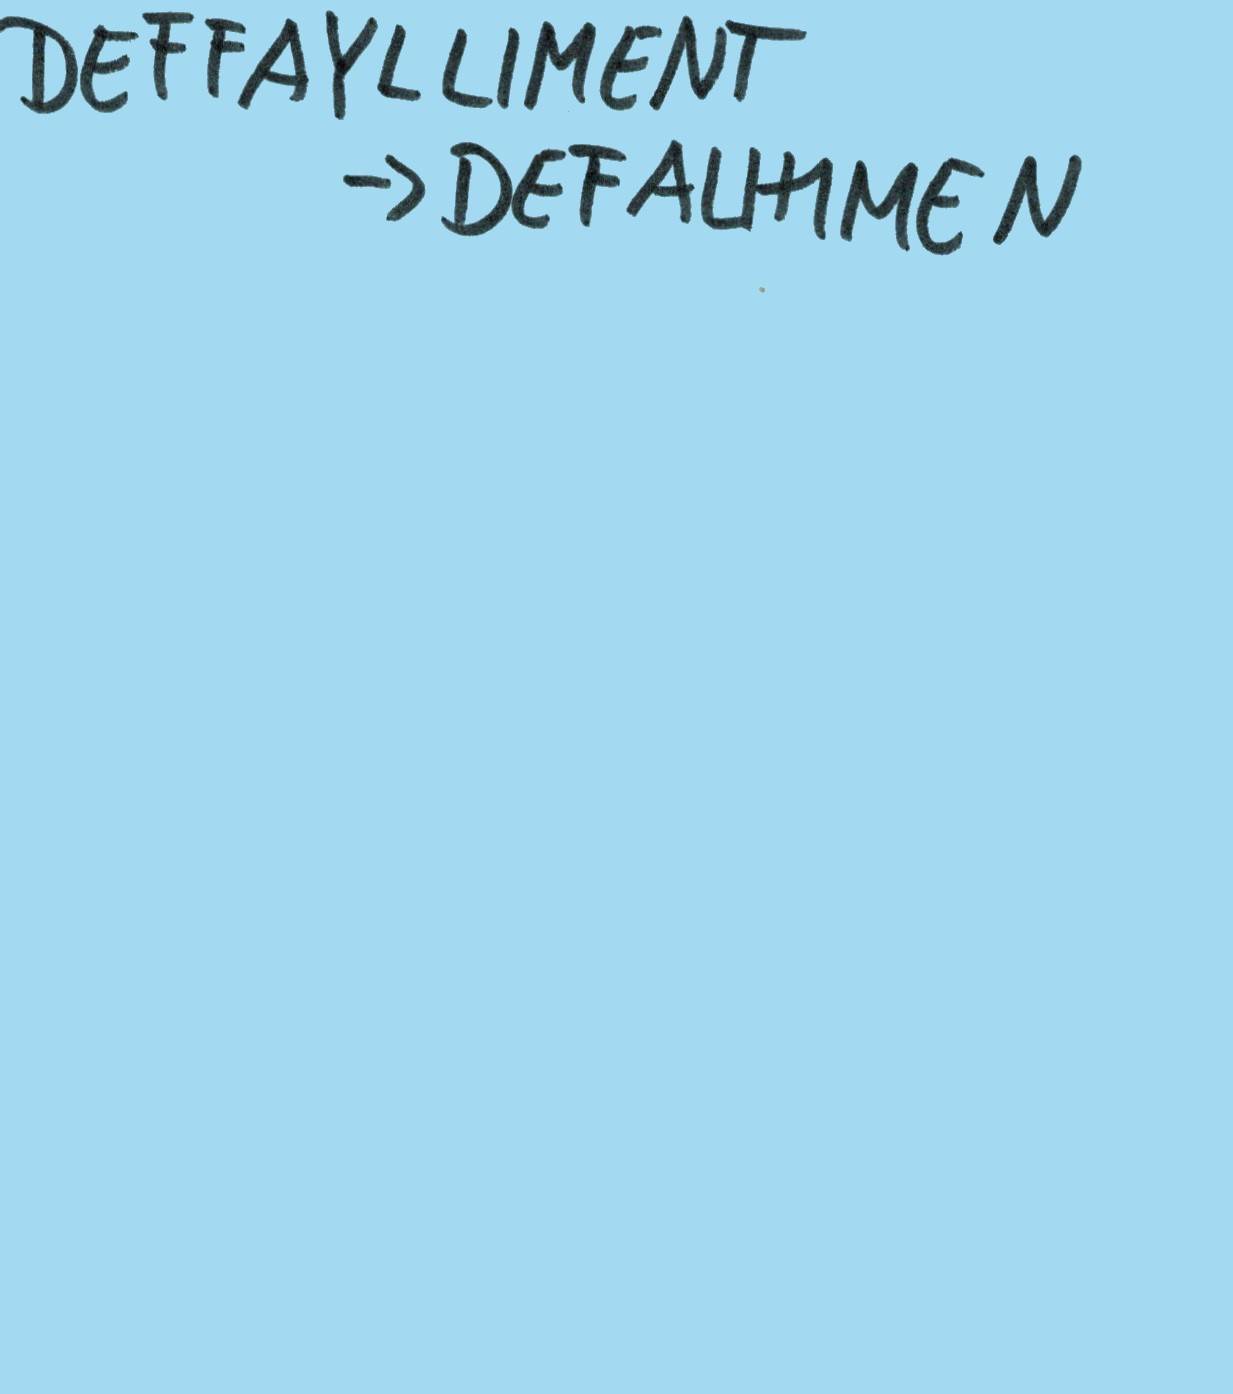 DEFFAYLLIMENT
-> DEFALHIMEN